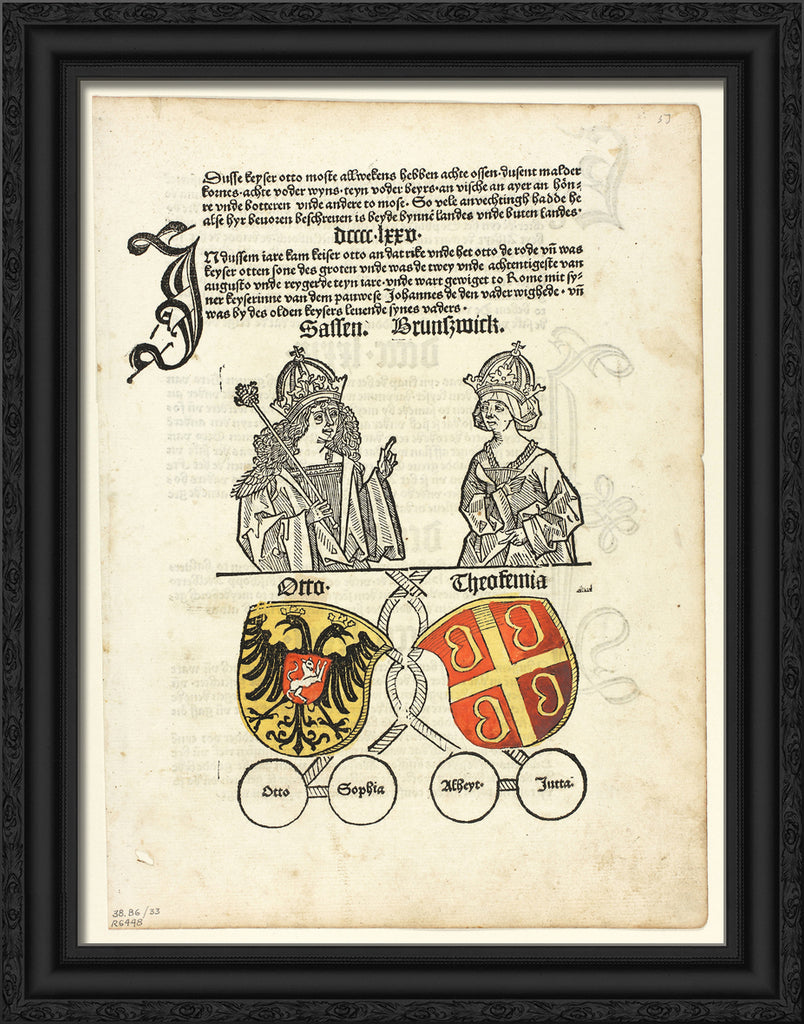 53
Dusse keyser otto moste all wekens hebben achte ossen· dusent malder
kornes· achte voder wyns· teyn voder beyrs· an vische an ayer an hön-
re vnde botteren vnde andere to mose· So vele anvechtingh hadde he
alse hyr bevoren beschreuen is beyde bynnē landes vnde buten landes·
dcccc·lxxv·
IN dussem iare kam keiser otto an dat rike vnde het otto de rode vñ was
keyser otten sone des groten vnde was de twey vnde achtentigeste van
augusto vnde reygerde teyn iare· vnde wart gewiget to Rome mit sy-
ner keyserinne van dem pauwese Johannes de den vader wighede· vñ
was by des olden keysers leuende synes vaders·
Sassen. Brunszwick.
Otto· Theofemia
Otto Sophia Alheyt· Jutta·
38.86/33
R6448